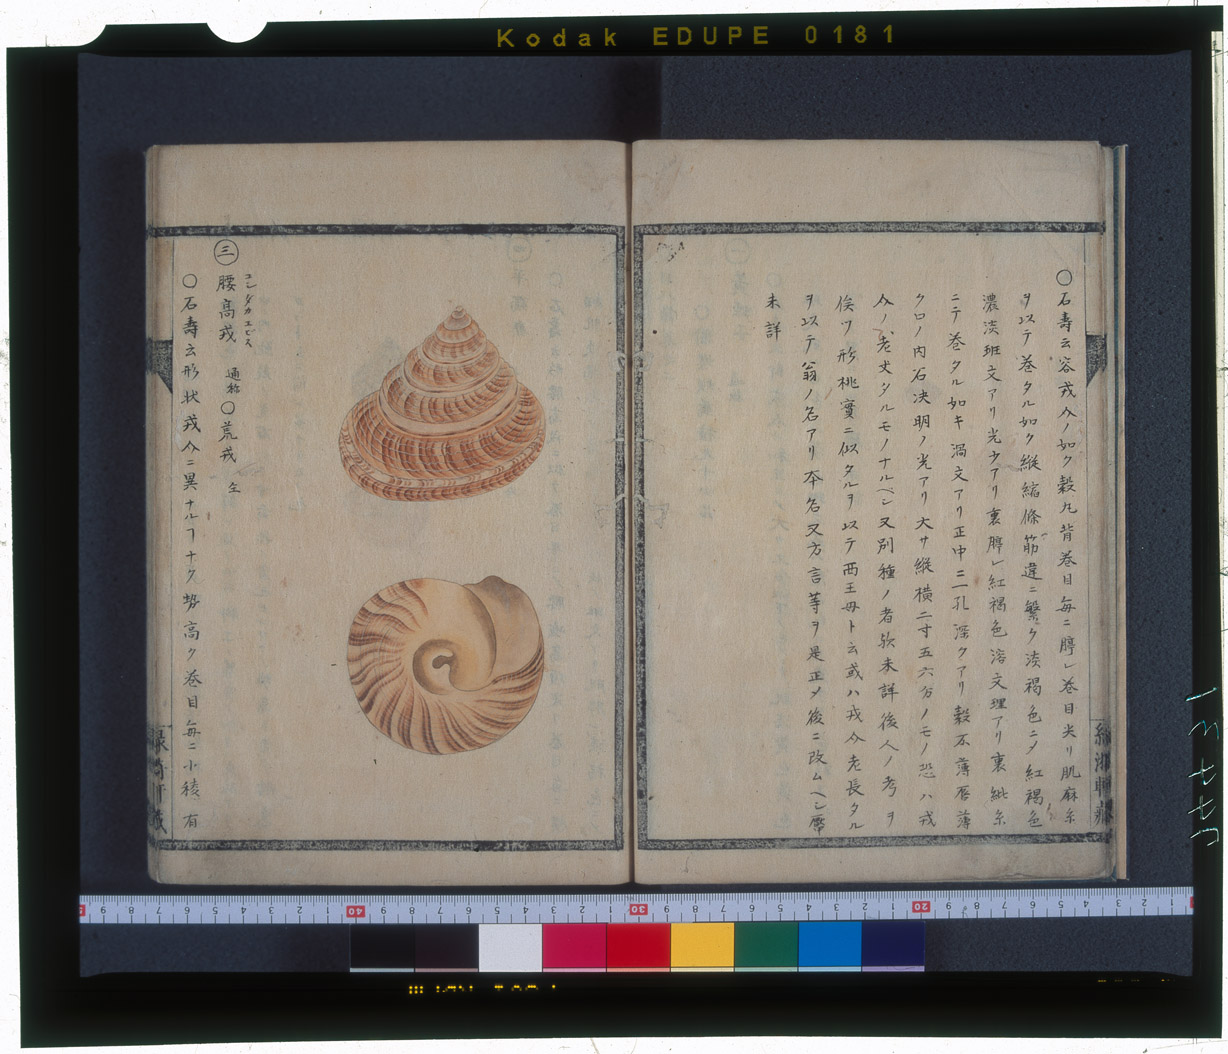 Kodak EDUPE 0181
○石壽云容戎介ノ如ク穀九背巻目毎ニ膨レ巻目尖リ肌麻糸
ヲ以テ巻タル如ク縦縮條筋違ニ繁ク淡褐色ニメ紅褐色
濃淡班文アリ光少アリ裏膨レ紅褐色溶文理アリ裏紕糸
ニテ巻タル如キ渦文アリ正中ニ一孔深クアリ穀不薄唇薄
ク口ノ内石决明ノ光アリ大サ縦横二寸五六分ノモノ恐ハ戎
介ノ老丈タルモノナルベシ又別種ノ者欤未詳後人ノ考ヲ
俟ツ形桃實ニ似タルヲ以テ西王母ト云或ハ戎介老長タル
ヲ以テ翁ノ名アリ本名又方言等ヲ是正メ後ニ改ムヘシ
未詳
㊂腰高戎 通称○荒戎 仝
コシダカエビス
○石壽云形状戎介ニ異ナルヿナク勢高ク巻目毎ニ小稜有